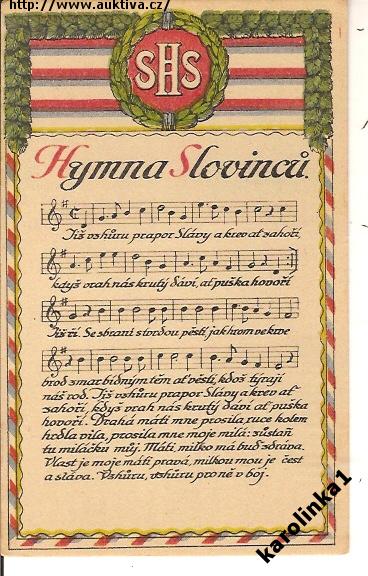 http://www.auktiva.cz/
SHS
Hymna Slovinců.
Jiš vshůru prapor Slávy a krev ať zahoří,
když vrah nás krutý dáví, ať puška hovoří
Jiš ří. Se zbraní s tvrdou pěstí, jak hrom ve krve
brod smar bídným těm ať věstí, kdož týrají
náš rod. Jiš vshůru prapor Slávy a krev ať
zahoří, když vrah nás krutý dáví ať puška
hovoří. Drahá máti mne prosila ruce kolem
hrdla vila, prosila mne moje milá: zůstaň
tu miláčku můj. Máti, milko má buď zdráva.
Vlast je moje máti pravá, milkou mou je čest
a sláva. Vshůru, vshůru pro ně v boj.
karolinka1